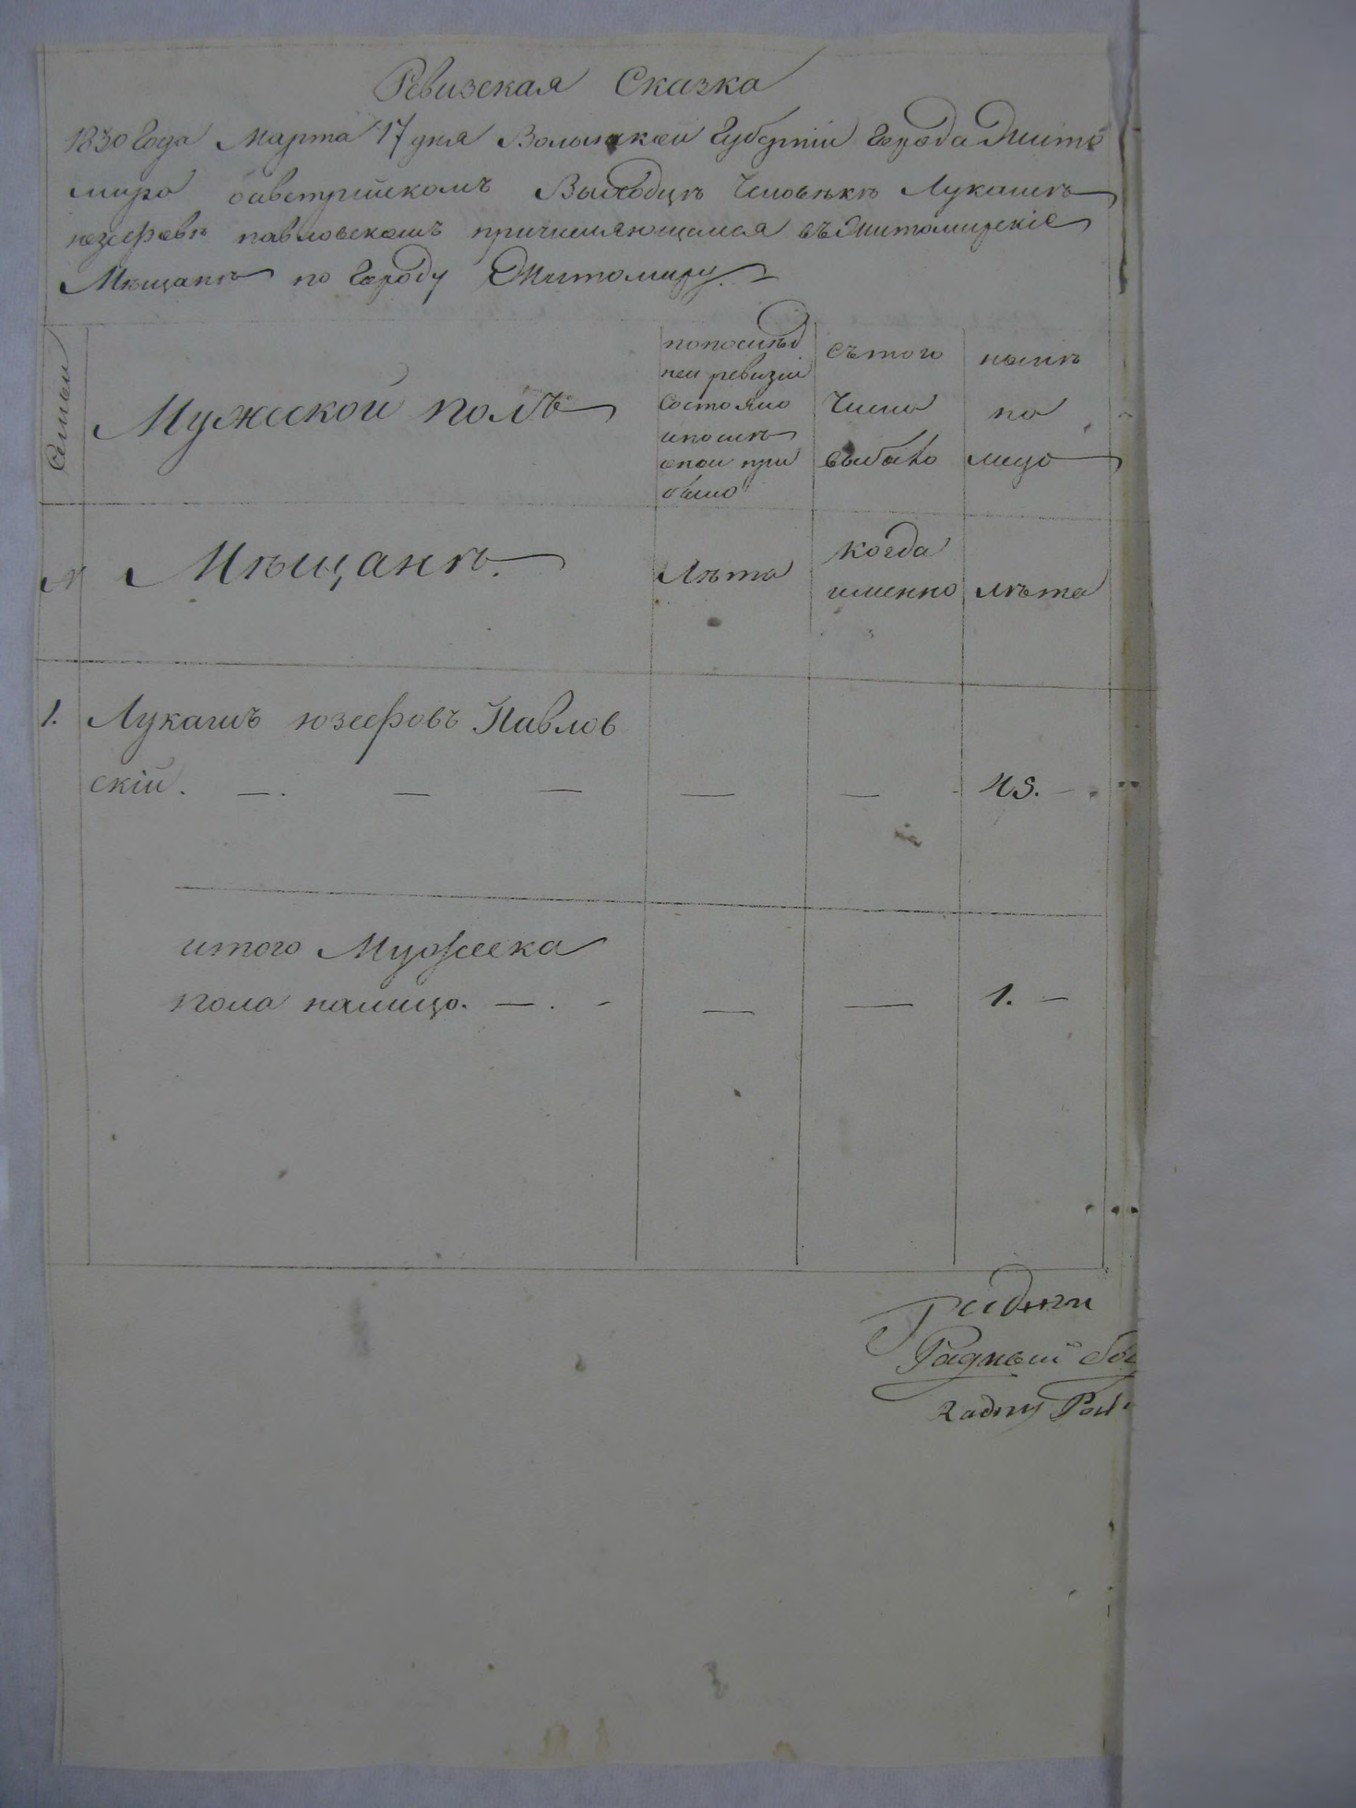 Ревизская Сказка
1830 Года Марта 17 дня Волынской Губернiи Города Жито
мира о австрiйскомъ Выходцѣ Человѣкѣ Лукашѣ
юзефовѣ павловскомъ причисляющемся въ Житомирскiе
Мѣщанѣ по Городу Житомиру.
Семьи
Мужеской полъ
по послѣд
ней ревизiи
состояло
и послѣ
оной при
было
съ того
Числа
выбыло
нынѣ
на
лицо
№
Мѣщанѣ.
Лѣта
когда
именно
лѣта
1. Лукашъ юзефовъ Павлов
скiй. — . — — — — 45. —
итого Мужеска
пола налицо. — . - — — 1. —
Гадный